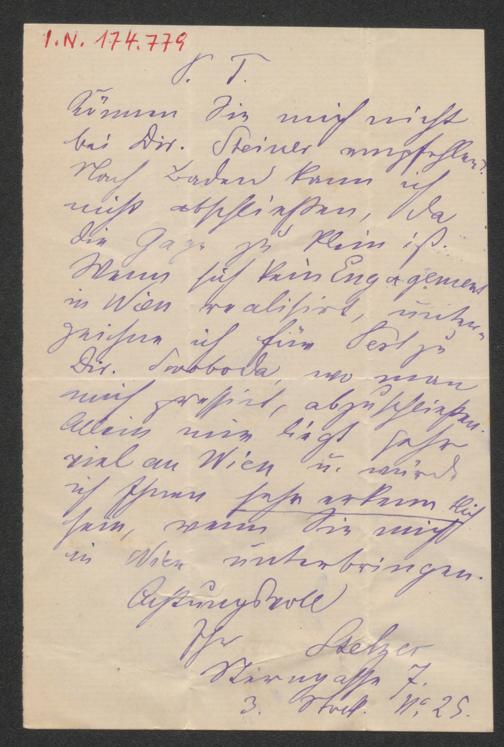 I.N. 174.779
P. T.
Können Sie mich nicht
bei Dir. Steiner empfehlen?
Nach Baden kann ich
nicht abschließen, da
die Gage zu klein ist.
Wenn sich kein Engagement
in Wien realisirt, unter-
zeichne ich für Pest zu
Dir. Swoboda, wo man
mich pressirt, abzuschließen.
Allein mir liegt sehr
viel an Wien u. würde
ich Ihnen sehr erkenntlich
sein, wenn Sie mich
in Wien unterbringen.
Achtungsvoll
Ihr Stelzer
Sterngasse 7.
3. Stock. No. 25.